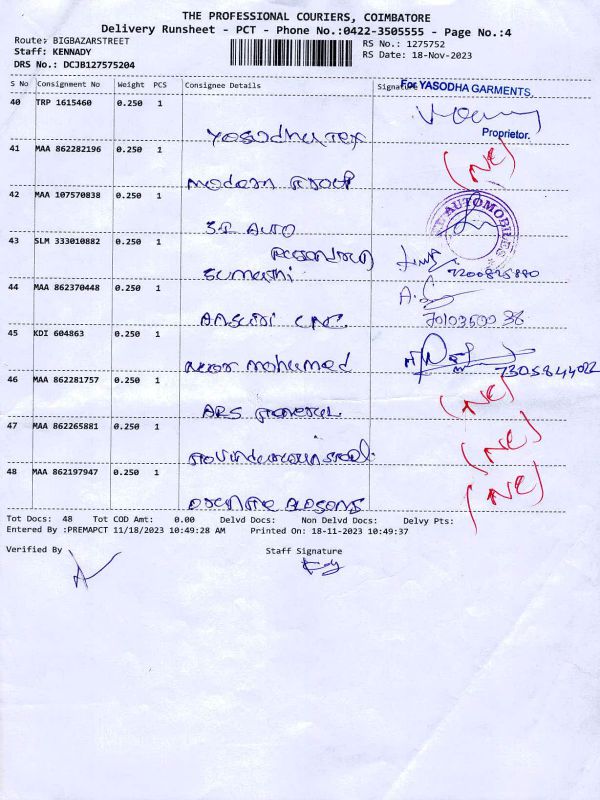 THE PROFESSIONAL COURIERS, COIMBATORE
Delivery Runsheet - PCT - Phone No.:0422-3505555 - Page No.:4
Route: BIGBAZARSTREET
Staff: KENNADY
DRS No.: DCJB127575204
RS No.: 1275752
RS Date: 18-Nov-2023
S No Consignment No Weight PCS Consignee Details Signature
For YASODHA GARMENTS,
40 TRP 1615460 0.250 1
Yasodha Tex
Proprietor.
41 MAA 862282196 0.250 1
Modern Group (NC)
42 MAA 107570838 0.250 1
AUTO
AUTOMOBILES
43 SLM 333010882 0.250 1
Sumathi 7200825880
44 MAA 862370448 0.250 1
CNC
45 KDI 604863 0.250 1
Noor Mohamed 7305844022
46 MAA 862281757 0.250 1
ARS (NC)
47 MAA 862265881 0.250 1
(NC)
48 MAA 862197947 0.250 1
(NC)
Tot Docs: 48 Tot COD Amt: 0.00 Delvd Docs: Non Delvd Docs: Delvy Pts:
Entered By :PREMAPCT 11/18/2023 10:49:28 AM Printed On: 18-11-2023 10:49:37
Verified By Staff Signature